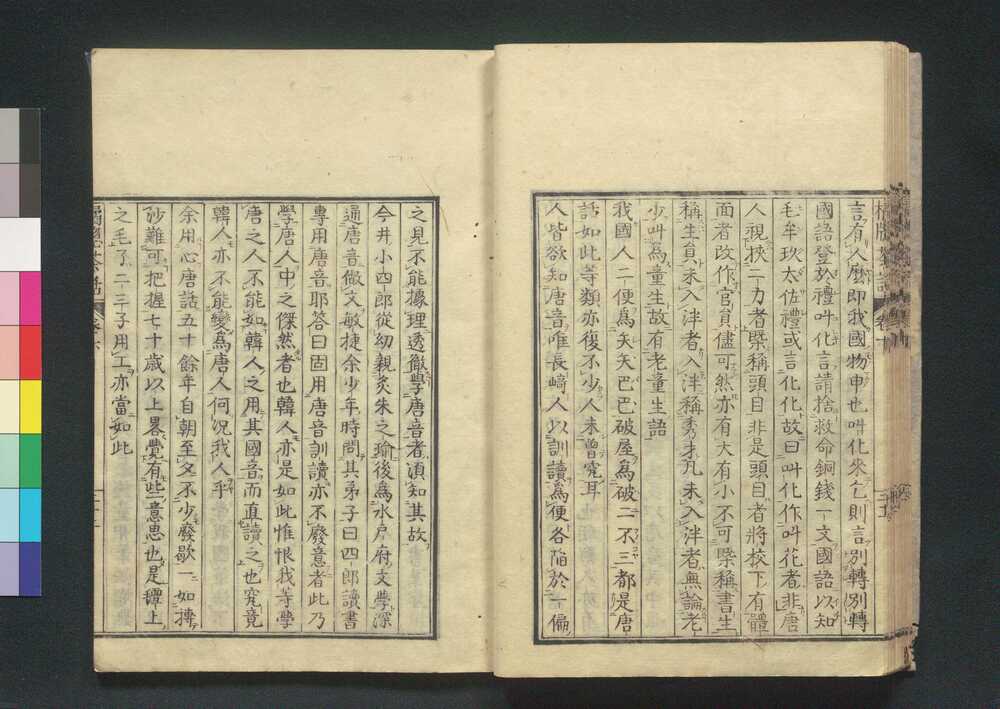 言有人麽即我國物申也叫化來乞則言別轉別轉
國語登於禮叶化言請捨救命銅錢一文國語以知
毛牟玖太佐禮或言化化故曰叫化作叫花者非唐
人視挾二力者槩稱頭目非是頭目者將校下有體
面者改作官員儘可然亦有大有小不可槩稱書生
稱生員未入泮者入泮稱秀才凡未入泮者無論老
少叫為童生故有老童生語
我國人二便為矢矢巴巴破屋為破二不三都是唐
話如此等類亦復不少人未曾究耳
人皆欲知唐音唯長崎人以訓讀為便各陷於一偏
之見不能據理透徹學唐音者須知其故
今井小四郎從幼親炙朱之瑜後為水戶府文學深
通唐音做文敏捷余少年時問其弟子曰四郎讀書
專用唐音耶答曰固用唐音訓讀亦不廢意者此乃
學唐人中之傑然者也韓人亦是如此惟恨我等學
唐之人不能如韓人之用其國音而直讀之也究竟
韓人亦不能變為唐人何況我人乎
余用心唐話五十餘年自朝至夕不少廢歇一如摶
沙難可把握七十歲以上畧覺有些意思也是鑽上
之毛了二三子用工亦當如此